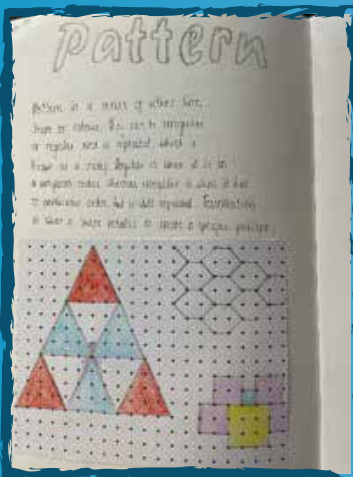 Pattern
Pattern is a series of either line,
shape or colour. It can be irregular
or regular and is repeated, which is
known as a motif. Regular is when it is in
a uniform order, whereas irregular is when it has
no particular order, but is still repeated. Tessellation
is when a shape rotates to create a specific pattern.